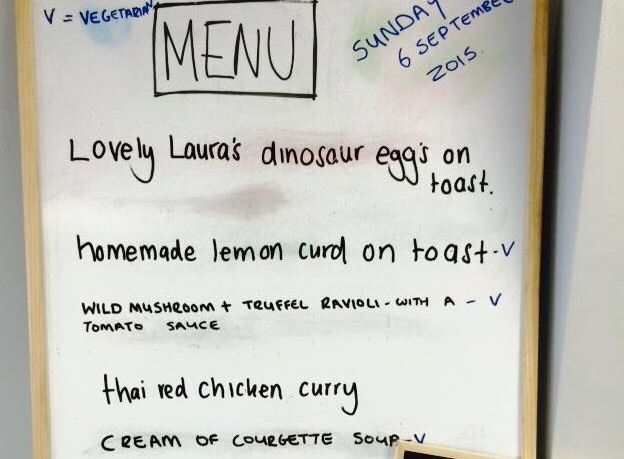 V = VEGETARIAN
MENU
SUNDAY
6 SEPTEMBER
2015.
Lovely Laura's dinosaur egg's on
toast.
homemade lemon curd on toast-V
WILD MUSHROOM + TRUFFEL RAVIOLI - WITH A - V
TOMATO SAUCE
thai red chicken curry
CREAM OF COURGETTE SOUP-V